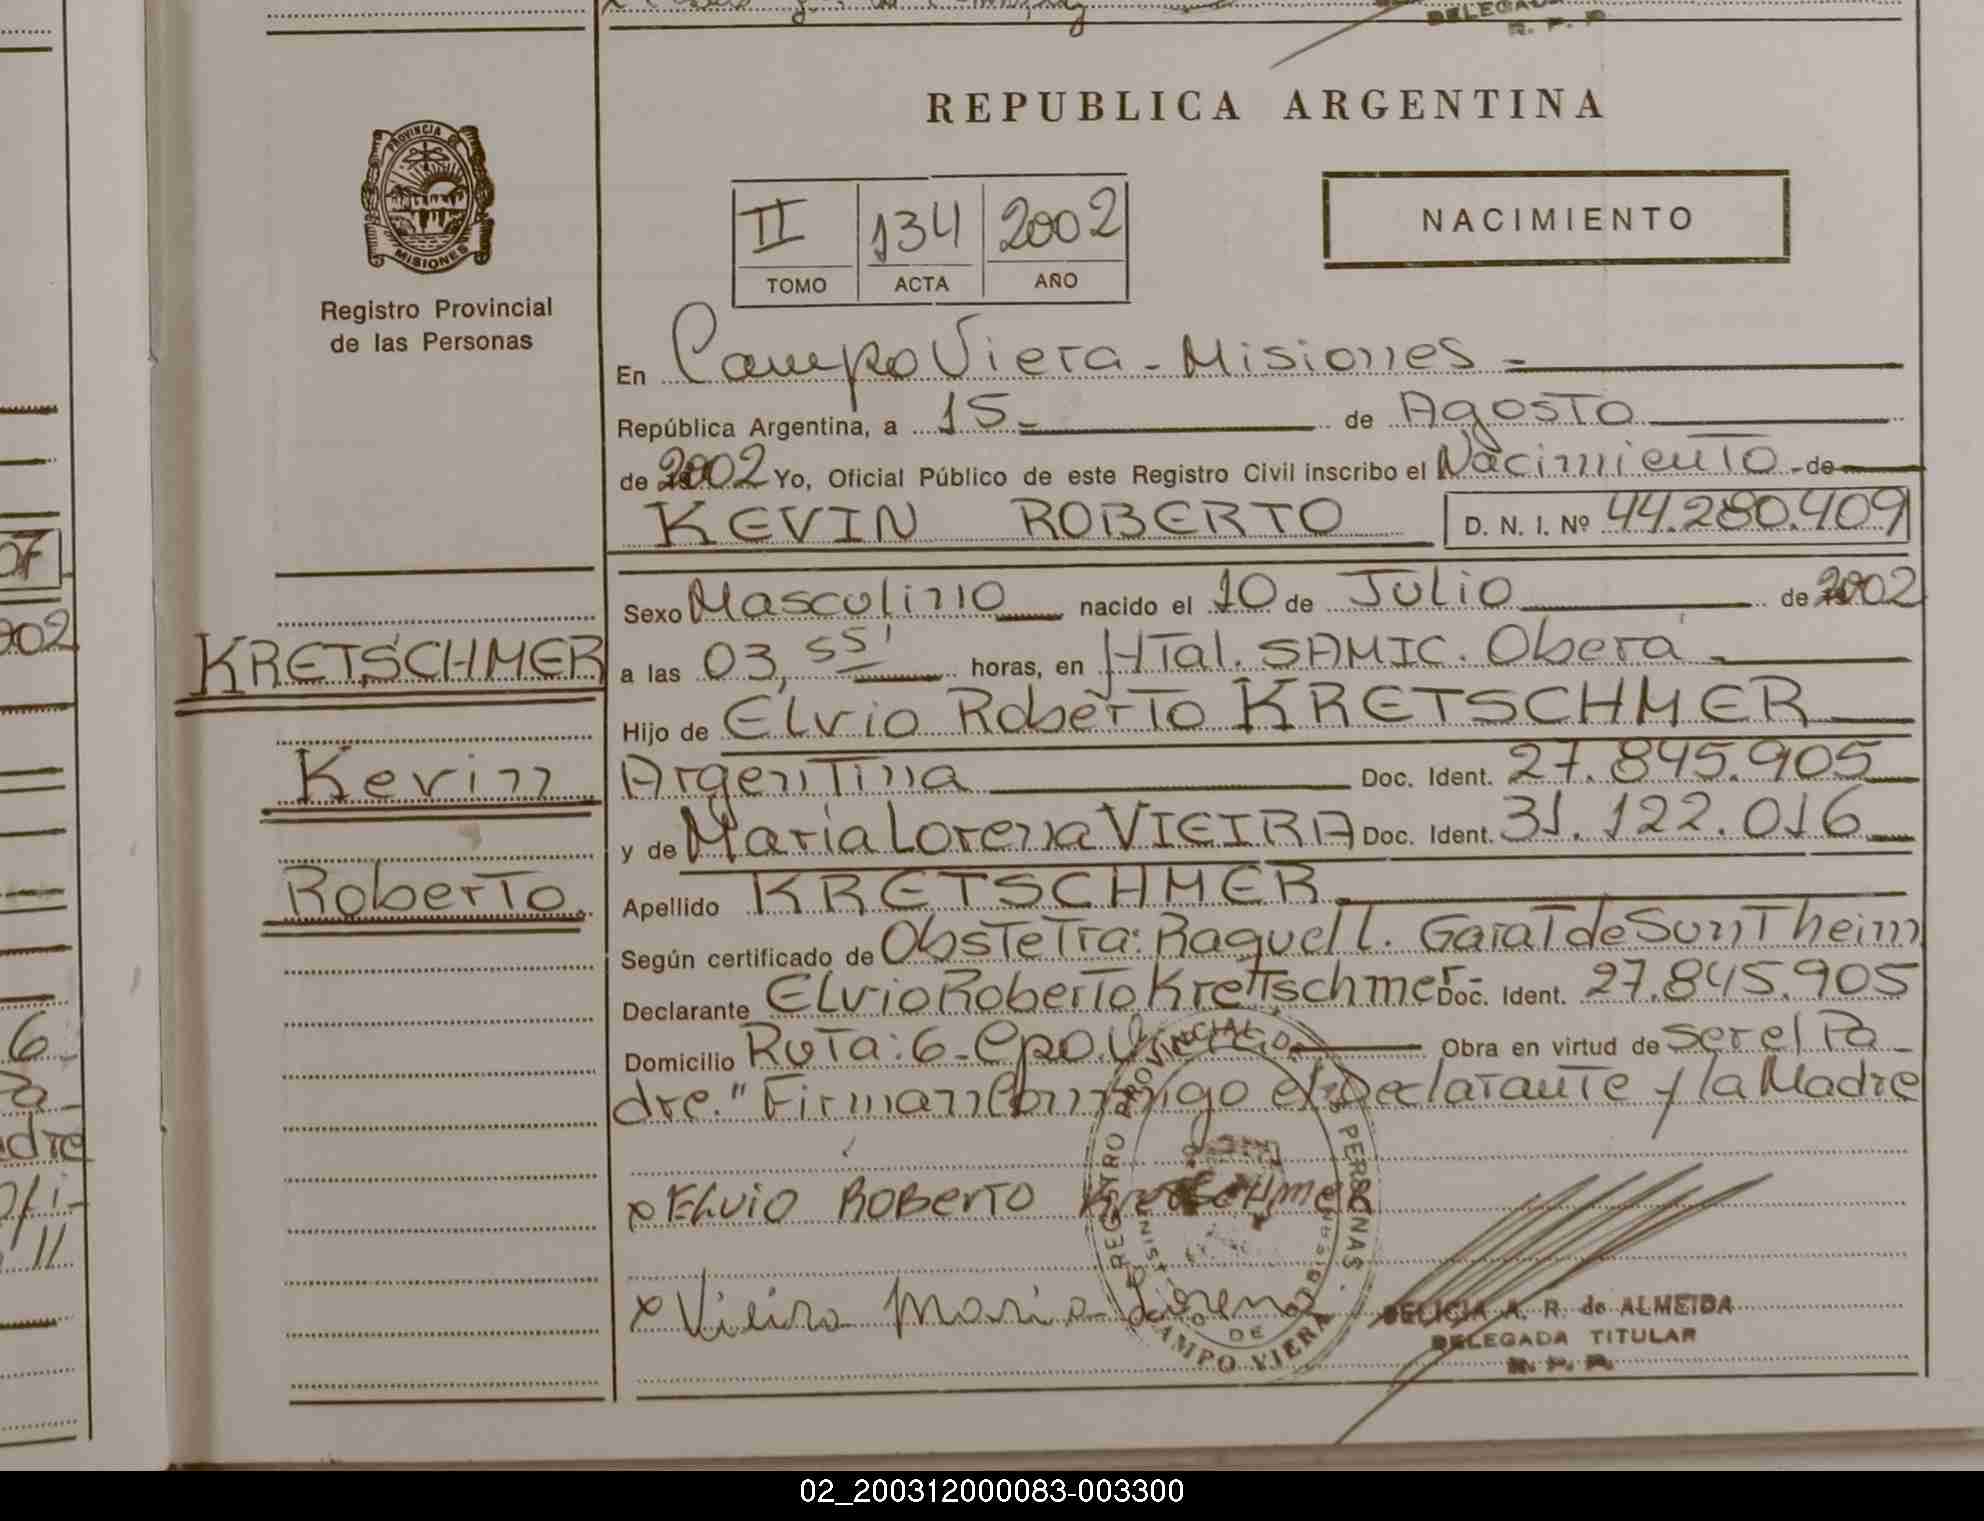 REPUBLICA ARGENTINA
PROVINCIA DE
MISIONES
Registro Provincial
de las Personas
II 134 2002
TOMO ACTA AÑO
NACIMIENTO
En Campo Viera - Misiones =
República Argentina, a 15 = de Agosto
de 2002 Yo, Oficial Público de este Registro Civil inscribo el Nacimiento - de
KEVIN ROBERTO D. N. I. Nº 44.280.409
Sexo Masculino nacido el 10 de Julio de 2002
KRETSCHMER
a las 03, 55' horas, en HTal. SAMIC. Oberá -
Hijo de Elvio Roberto KRETSCHMER
Kevin
Argentina Doc. Ident. 27.845.905
y de María Lorena VIEIRA Doc. Ident. 31.122.016
Roberto.
Apellido KRETSCHMER
Según certificado de Obstetra: Raquel L. Garat de Suntheim
Declarante Elvio Roberto Kretschmer - Doc. Ident. 27.845.905
Domicilio Ruta: 6 - Cpo. Viera Obra en virtud de ser el Pa-
dre." Firman Conmigo el Declarante y la Madre
x ELvio ROBERTO KretsCHmer
x Vieira Maria Lorena
REGISTRO PROVINCIAL DE LAS PERSONAS
CAMPO VIERA
DELICIA A. R. de ALMEIDA
DELEGADA TITULAR
R. P. P.
02_200312000083-003300